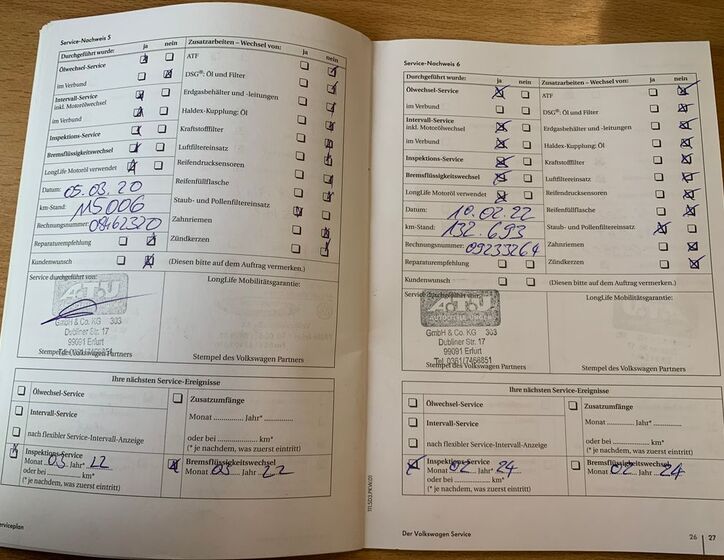 Service-Nachweis 5
Durchgeführt wurde: ja nein
Ölwechsel-Service
im Verbund
Intervall-Service
inkl. Motorölwechsel
im Verbund
Inspektions-Service
Bremsflüssigkeitswechsel
LongLife Motoröl verwendet
Datum: 05.03.20
km-Stand: 115006
Rechnungsnummer: 08462320
Reparaturempfehlung
Kundenwunsch
Zusatzarbeiten – Wechsel von: ja nein
ATF
DSG®: Öl und Filter
Erdgasbehälter und -leitungen
Haldex-Kupplung: Öl
Kraftstofffilter
Luftfiltereinsatz
Reifendrucksensoren
Reifenfüllflasche
Staub- und Pollenfiltereinsatz
Zahnriemen
Zündkerzen
(Diesen bitte auf dem Auftrag vermerken.)
Service durchgeführt von:
A.T.U
GmbH & Co. KG 303
Dubliner Str. 17
99091 Erfurt
Stempel des Volkswagen Partners
LongLife Mobilitätsgarantie:
Stempel des Volkswagen Partners
Ihre nächsten Service-Ereignisse
Ölwechsel-Service
Intervall-Service
nach flexibler Service-Intervall-Anzeige
Zusatzumfänge
Monat .............. Jahr* ..............
oder bei .............. km*
(* je nachdem, was zuerst eintritt)
Inspektions-Service
Monat 03 Jahr* 22
oder bei .............. km*
(* je nachdem, was zuerst eintritt)
Bremsflüssigkeitswechsel
Monat 03 Jahr 22
Serviceplan
Service-Nachweis 6
Durchgeführt wurde: ja nein
Ölwechsel-Service
im Verbund
Intervall-Service
inkl. Motorölwechsel
im Verbund
Inspektions-Service
Bremsflüssigkeitswechsel
LongLife Motoröl verwendet
Datum: 10.02.22
km-Stand: 132.693
Rechnungsnummer: 09233264
Reparaturempfehlung
Kundenwunsch
Zusatzarbeiten – Wechsel von: ja nein
ATF
DSG®: Öl und Filter
Erdgasbehälter und -leitungen
Haldex-Kupplung: Öl
Kraftstofffilter
Luftfiltereinsatz
Reifendrucksensoren
Reifenfüllflasche
Staub- und Pollenfiltereinsatz
Zahnriemen
Zündkerzen
(Diesen bitte auf dem Auftrag vermerken.)
Service durchgeführt von:
A.T.U
GmbH & Co. KG 303
Dubliner Str. 17
99091 Erfurt
Tel. 0361/7466851
Stempel des Volkswagen Partners
LongLife Mobilitätsgarantie:
Stempel des Volkswagen Partners
Ihre nächsten Service-Ereignisse
Ölwechsel-Service
Intervall-Service
nach flexibler Service-Intervall-Anzeige
Zusatzumfänge
Monat .............. Jahr* ..............
oder bei .............. km*
(* je nachdem, was zuerst eintritt)
Inspektions-Service
Monat 02 Jahr* 24
oder bei .............. km*
(* je nachdem, was zuerst eintritt)
Bremsflüssigkeitswechsel
Monat 02 Jahr 24
Der Volkswagen Service
26 27